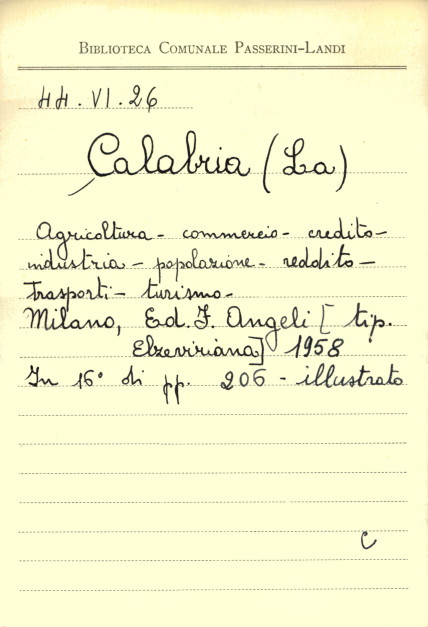 BIBLIOTECA COMUNALE PASSERINI-LANDI
44.VI.26
Calabria (La)
Agricoltura - commercio - credito -
industria - popolazione - reddito -
trasporti - turismo -
Milano, Ed. F. Angeli [tip.
Elzeviriana] 1958
In 16° di pp. 206 - illustrato
C